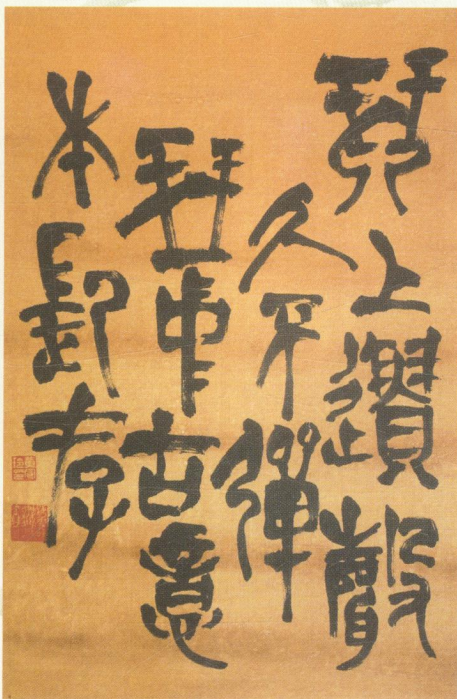 琴上遺聲
久不彈
琴中古意
本長存